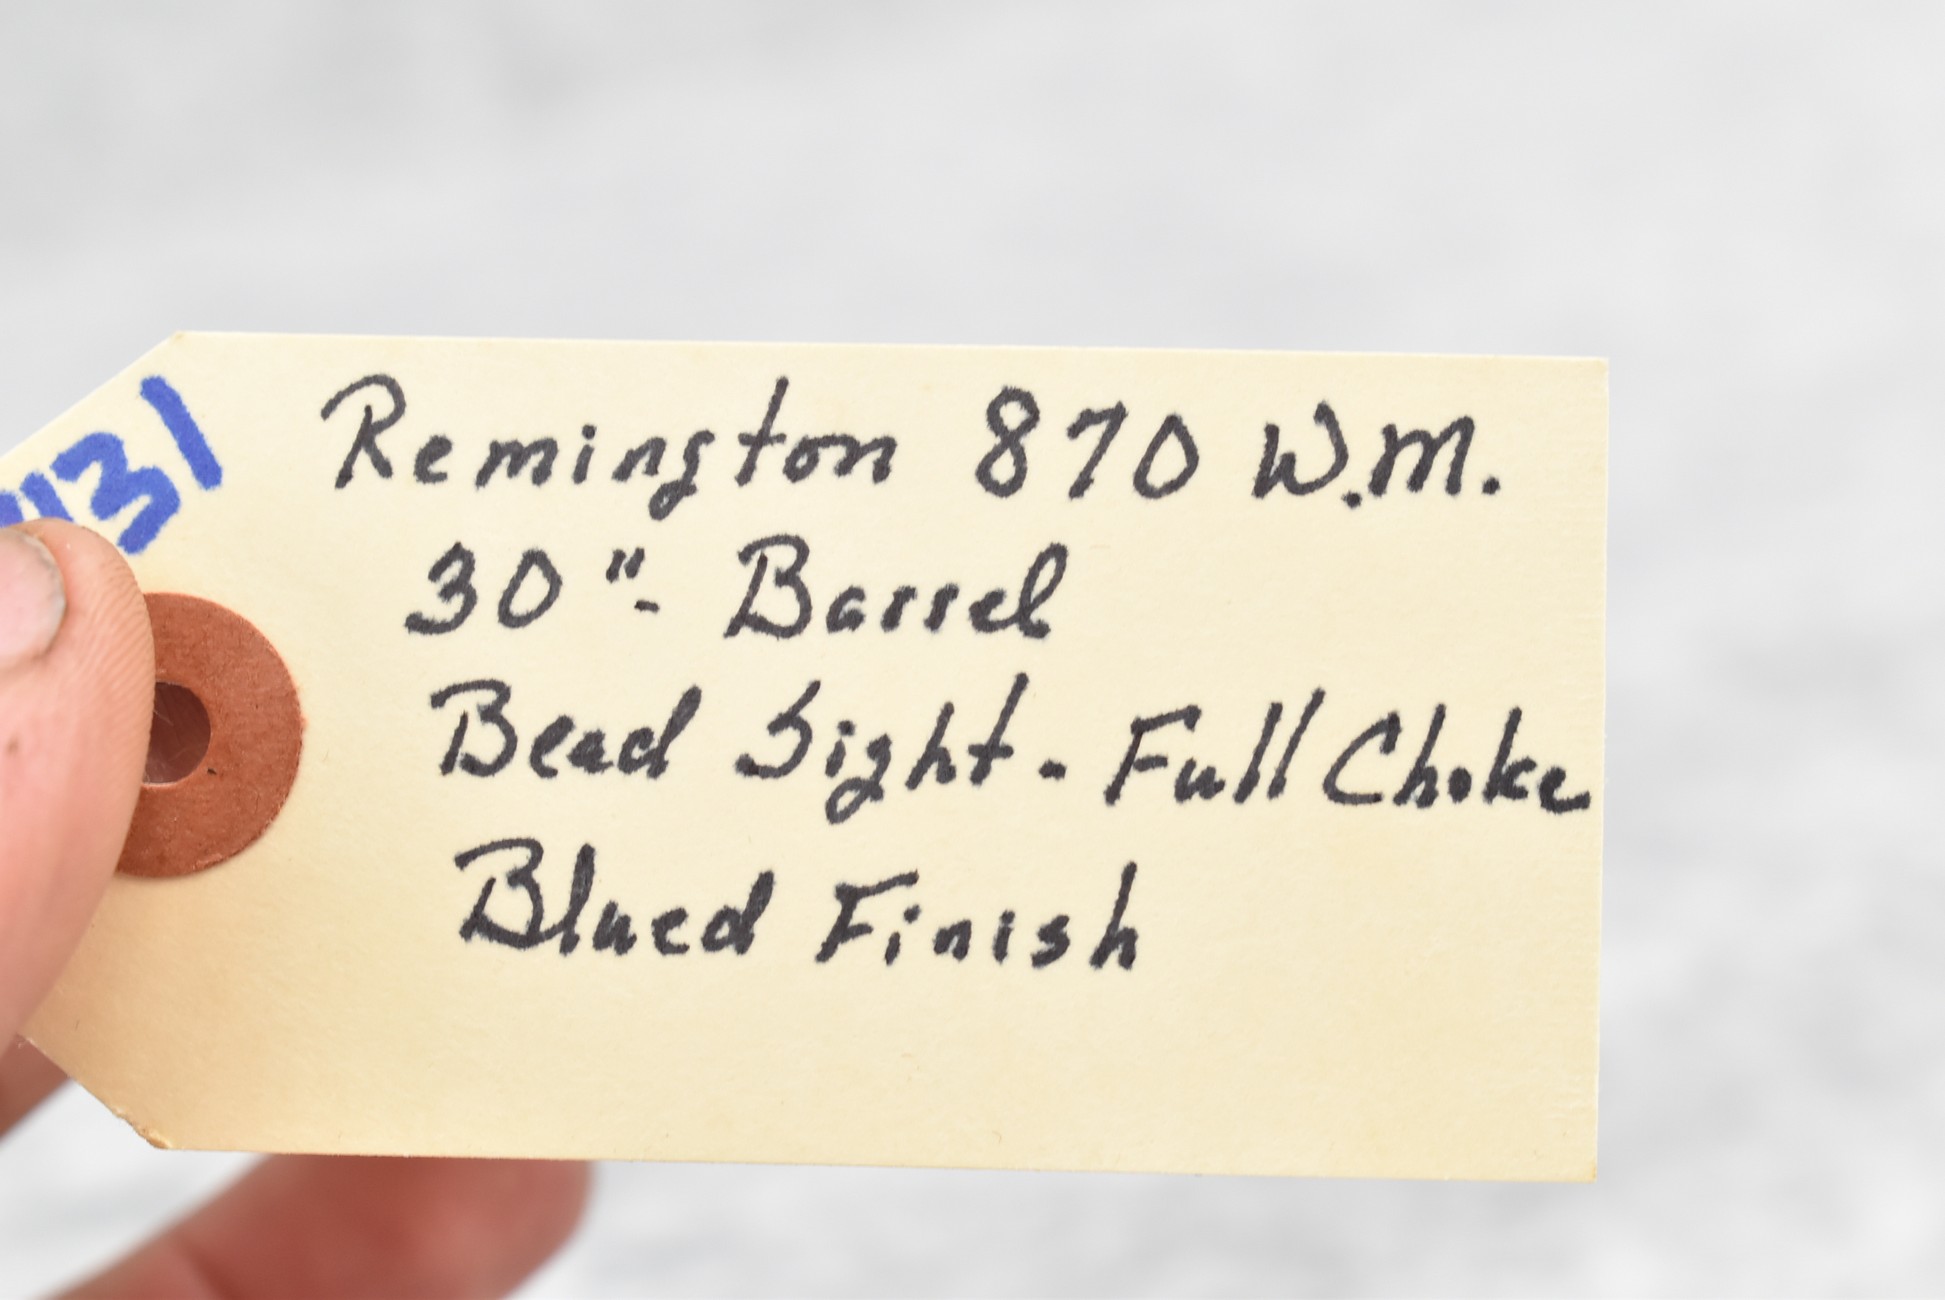 Remington 870 W.M.
30"- Barrel
Bead Sight - Full Choke
Blued Finish